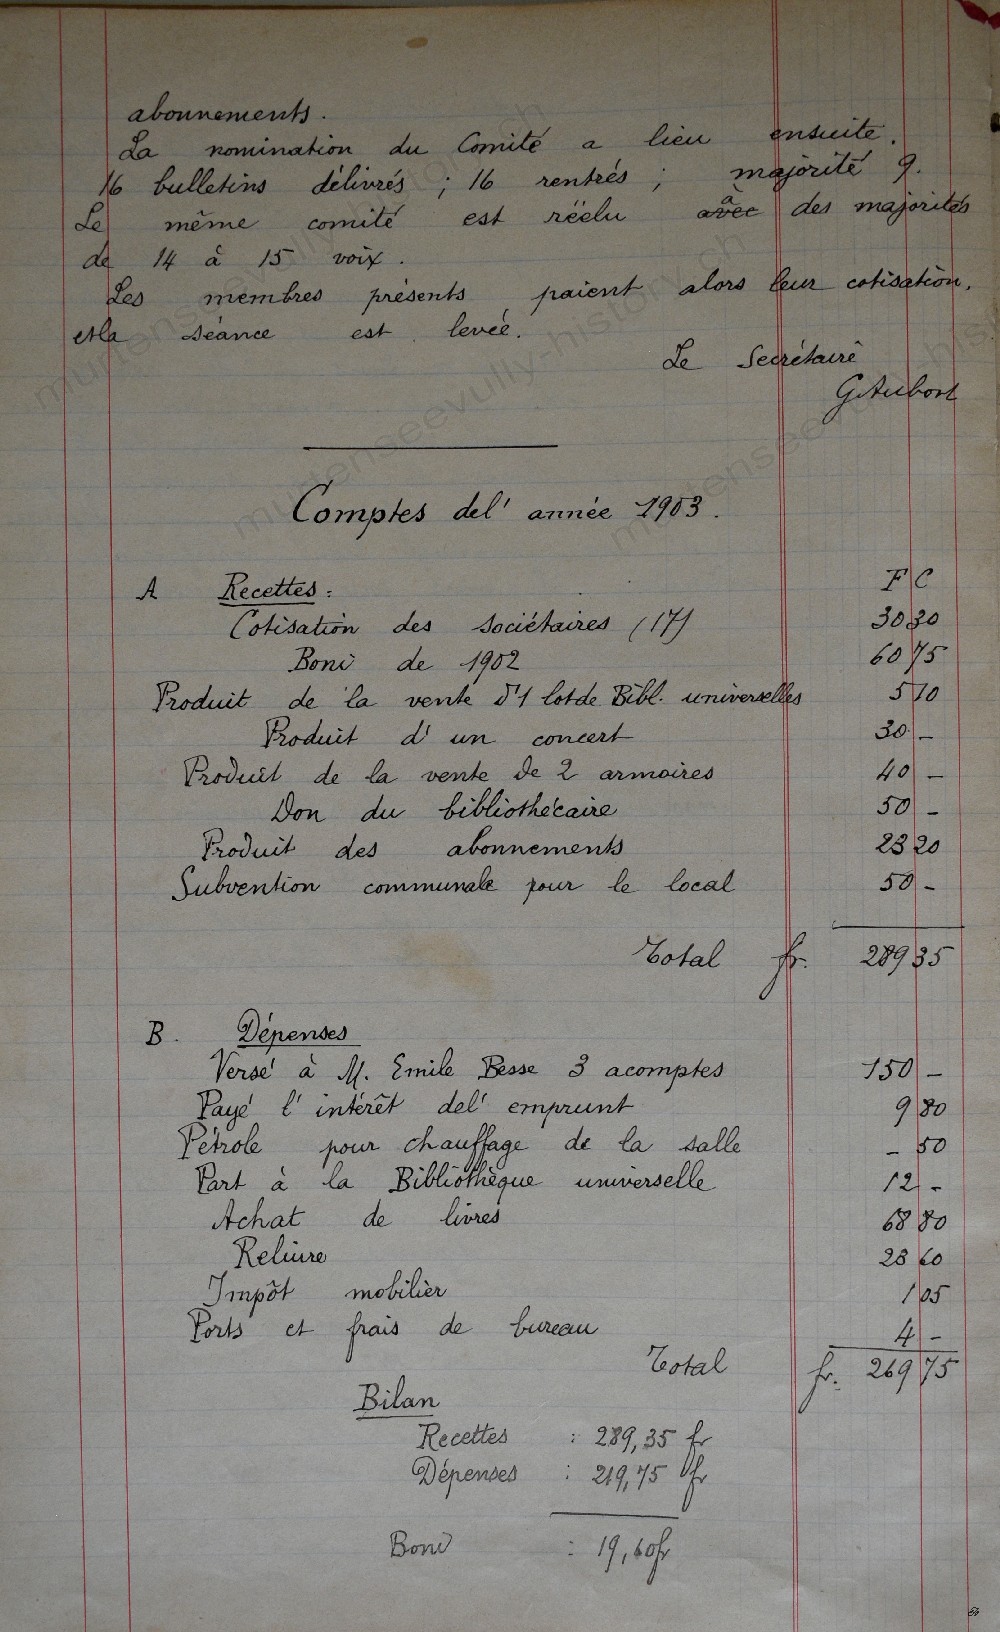 abonnements.
La nomination du Comité a lieu ensuite.
16 bulletins délivrés ; 16 rentrés ; majorité 9.
Le même comité est réélu avec à des majorités
de 14 à 15 voix.
Les membres présents paient alors leur cotisation,
et la séance est levée.
Le Secrétaire
G. Aubort
Comptes de l'année 1903.
F C
A Recettes :
Cotisation des sociétaires (17) 30 30
Boni de 1902 60 75
Produit de la vente d'1 lot de Bibl. universelles 5 10
Produit d'un concert 30 –
Produit de la vente de 2 armoires 40 –
Don du bibliothécaire 50 –
Produit des abonnements 23 20
Subvention communale pour le local 50 –
Total fr. 289 35
B. Dépenses
Versé à M. Emile Besse 3 acomptes 150 –
Payé l'intérêt de l'emprunt 9 80
Pétrole pour chauffage de la salle – 50
Part à la Bibliothèque universelle 12 –
Achat de livres 68 80
Reliure 23 60
Impôt mobilier 1 05
Ports et frais de bureau 4 –
Total fr. 269 75
Bilan
Recettes : 289,35 fr
Dépenses : 219,75 fr
Boni : 19,60 fr